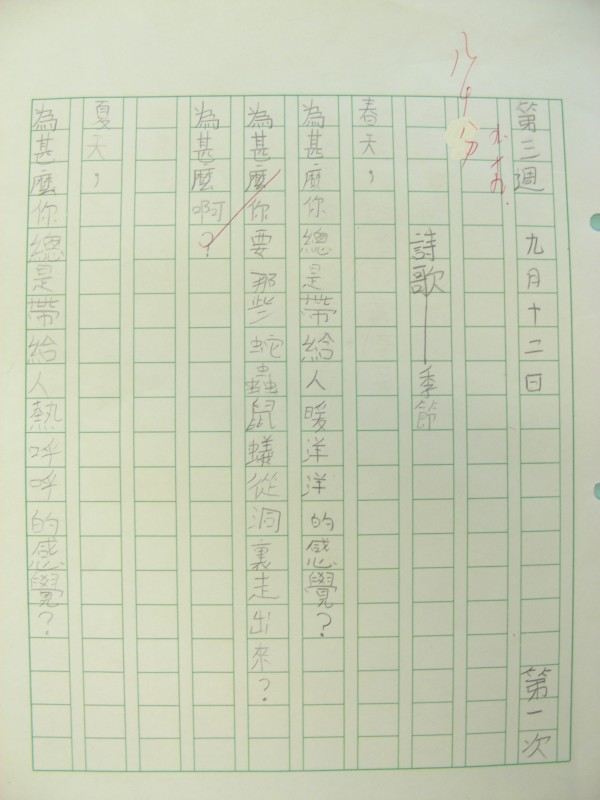 第三週 九月十二日 第一次
八十分
詩歌——季節
春天，
為甚麼你總是帶給人暖洋洋的感覺？
為甚麼你要那些蛇蟲鼠蟻從洞裏走出來？
為甚麼啊？
夏天，
為甚麼你總是帶給人熱呼呼的感覺？